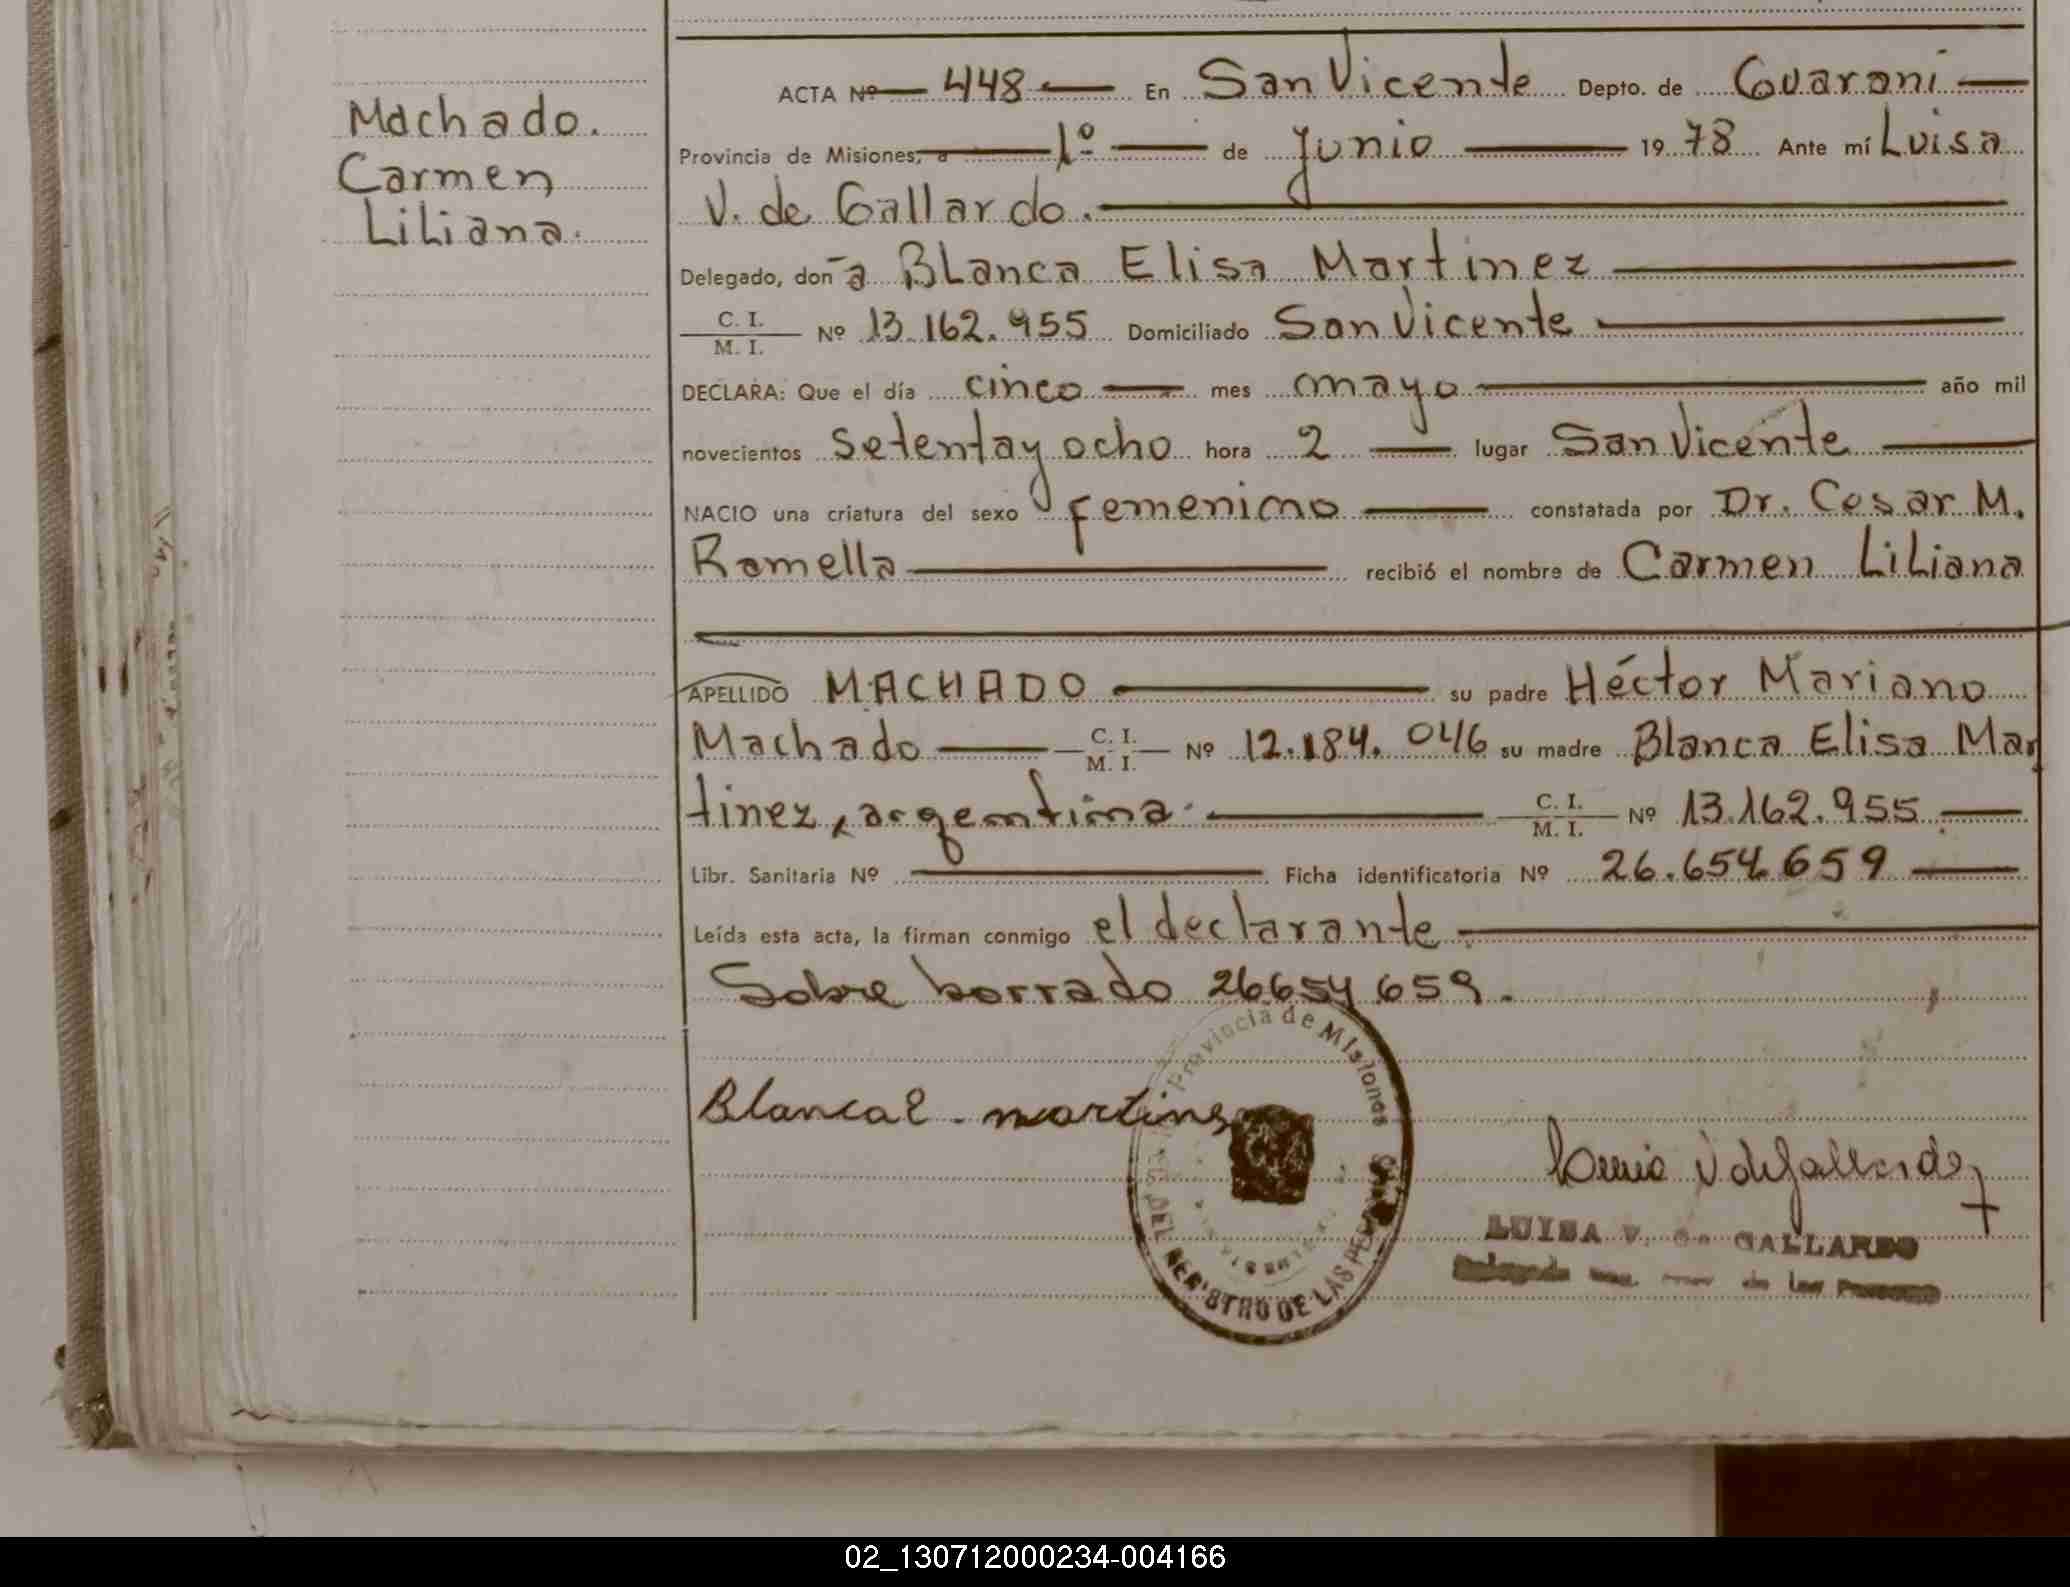 Machado.
Carmen
Liliana.
ACTA Nº 448 En San Vicente Depto. de Guarani
Provincia de Misiones, a 1º de Junio 1978 Ante mí Luisa
V. de Gallardo.
Delegado, doña Blanca Elisa Martinez
C. I.
M. I. Nº 13.162.955 Domiciliado San Vicente
DECLARA: Que el día cinco mes mayo año mil
novecientos setenta y ocho hora 2 lugar San Vicente
NACIO una criatura del sexo femenino constatada por Dr. Cesar M.
Ramella recibió el nombre de Carmen Liliana
APELLIDO MACHADO su padre Héctor Mariano
Machado C. I. M. I. Nº 12.184.046 su madre Blanca Elisa Mar
tinez, argentina. C. I. M. I. Nº 13.162.955
Libr. Sanitaria Nº Ficha identificatoria Nº 26.654.659
Leída esta acta, la firman conmigo el declarante
Sobre borrado 26654659.
Provincia de Misiones
DEL REGISTRO DE LAS PERSONAS
Blanca E. martines
Luisa V de Gallardo
LUISA V. de GALLARDO
02_130712000234-004166